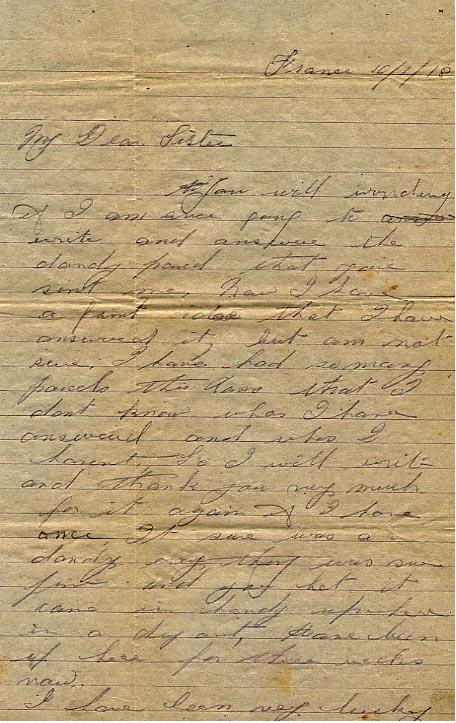 France 10/1/18
My Dear Sister
You will wonding
if I am ever going to
write and answere the
dandy parcel that you
sent me, Now I have
a faint idea that I have
answered it, but am not
sure, I have had so many
parcels this Xmas that I
dont know whos I have
answered and whos I
havent. So I will write
and thank you very much
for it again if I have
once. It sure was a
dandy was sure
fine and you bet it
came in handy up here
in a dug out, have been
up here for three weeks
now.
I have been very lucky